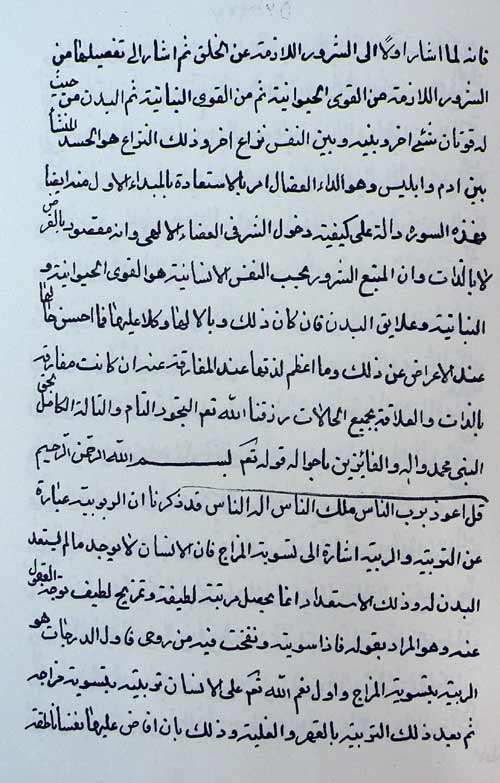 فانه لما اشار اولًا الى الشرور اللازمة عن الخلق ثم اشار الى تفصيلها من
الشرور اللازمة من القوى الحيوانية ثم من القوى النباتية ثم البدن من حيث
له قوتان شئ اخر وبينه وبين النفس نزاع اخر وذلك النزاع هو الحسد المنشأ
بين ادم وابليس وهو الداء العضال امر بالاستعاذة بالمبداء الاول منه ايضا
فهذه السورة دالة على كيفية دخول الشر فى القضاء الالهى وانه مقصود بالعرض
لا بالذات وان المنبع للشرور بحسب النفس الانسانية هو القوى الحيوانية و
النباتية وعلايق البدن فان كان ذلك وبالا لها وكلا عليها فما احسن حالها
عند الاعراض عن ذلك وما اعظم لذتها عند المفارقة عنه ان كانت مفارقة
بالذات والعلاقة بجميع الحالات رزقنا الله تعم التجرد التام والتاله الكامل بحق
النبى محمد واله والفائزين باحواله قوله تعم بسم الله الرحمن الرحيم
قل اعوذ برب الناس ملك الناس اله الناس قد ذكرنا ان الربوبية عبارة
عن التربية والتربية اشارة الى تسوية المزاج فان الانسان لا يوجد ما لم يستعد
البدن له وذلك الاستعداد انما يحصل بتربية لطيفة وتمزيج لطيف
عنه وهو المراد بقوله فاذا سويته ونفخت فيه من روحى فاول الدرجات هو
التربية بتسوية المزاج واول نعم الله تعم على الانسان تربيته بتسوية مزاجه
ثم بعد ذلك التربية بالقهر والغلبة وذلك بان افاض عليها نفسا ناطقة